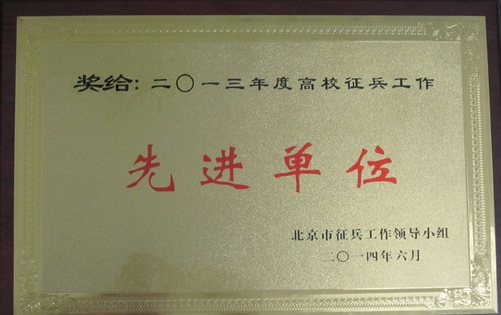 奖给:二〇一三年度高校征兵工作
先进单位
北京市征兵工作领导小组
二〇一四年六月